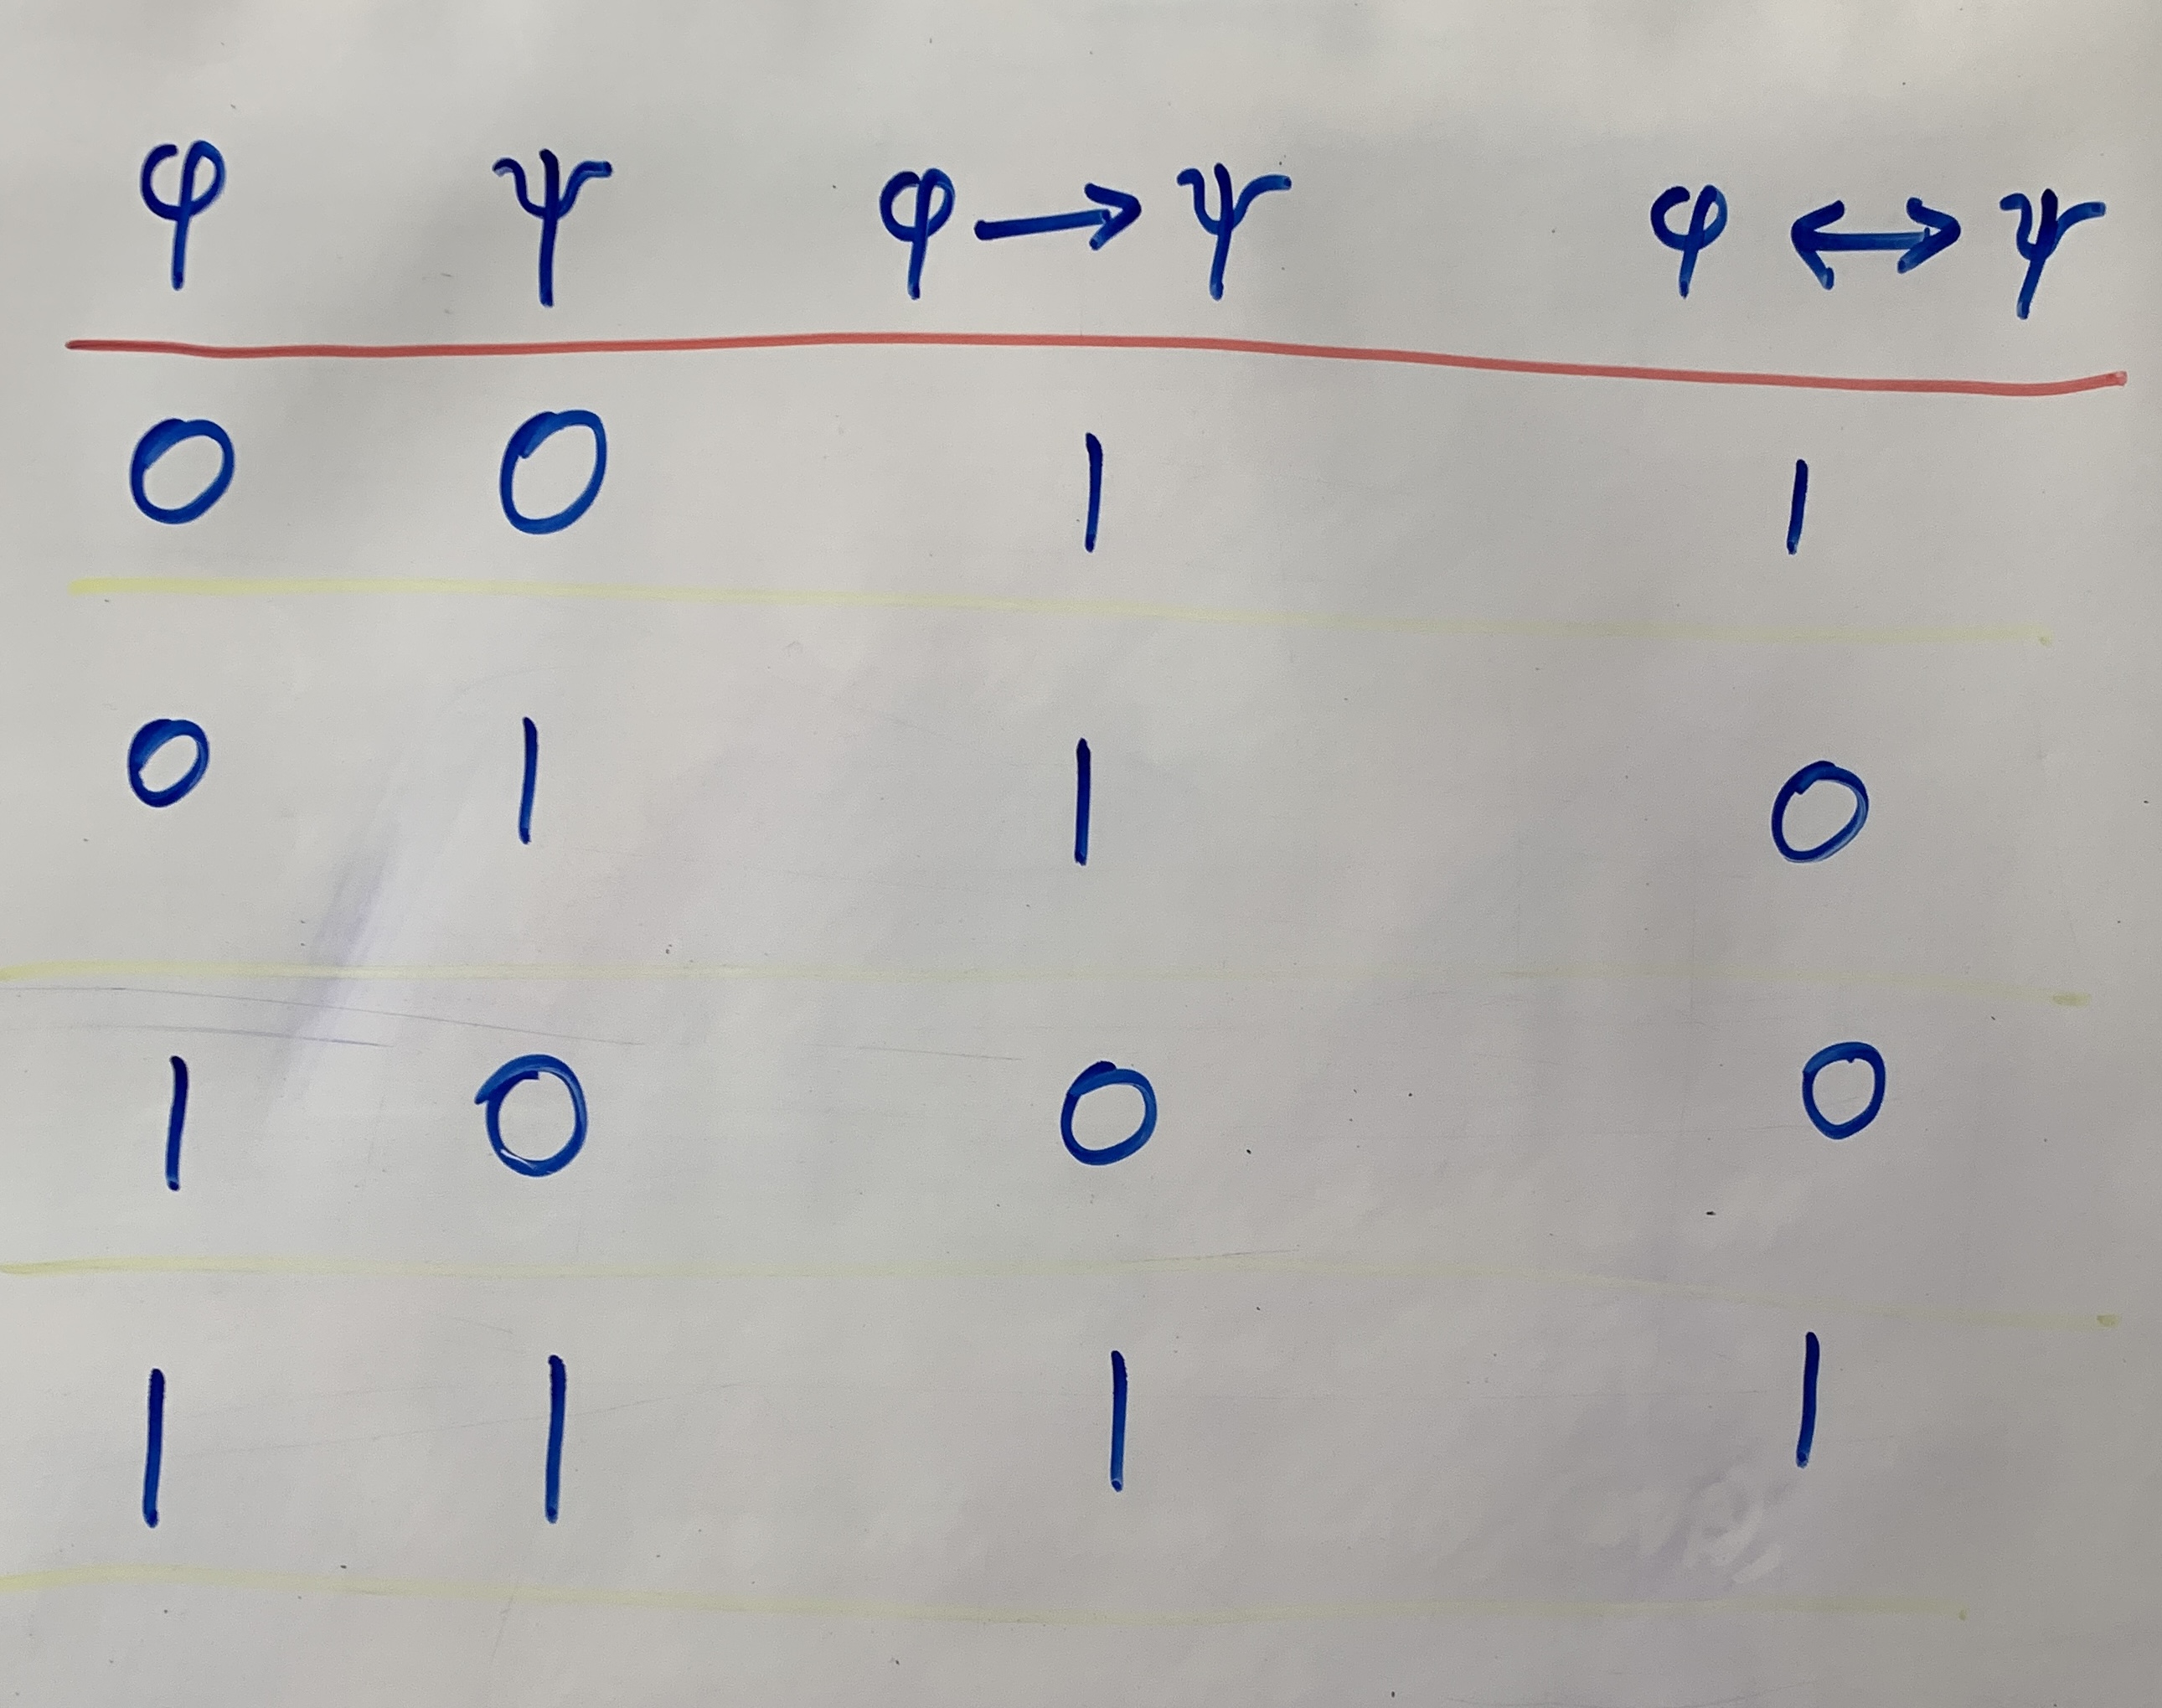 φ ψ φ → ψ φ ↔ ψ
0 0 1 1
0 1 1 0
1 0 0 0
1 1 1 1